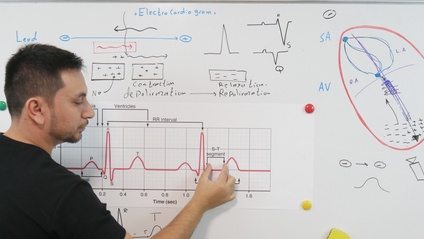 Electro Cardio gram
Lead
R
S
Q
SA
L.A
AV
Contraction
depolarization
Relaxation
Repolarization
Na+
Ventricles
RR Interval
S-T
segment
P
T
Q
S
0.2
0.4
0.6
Time (sec)
R
T